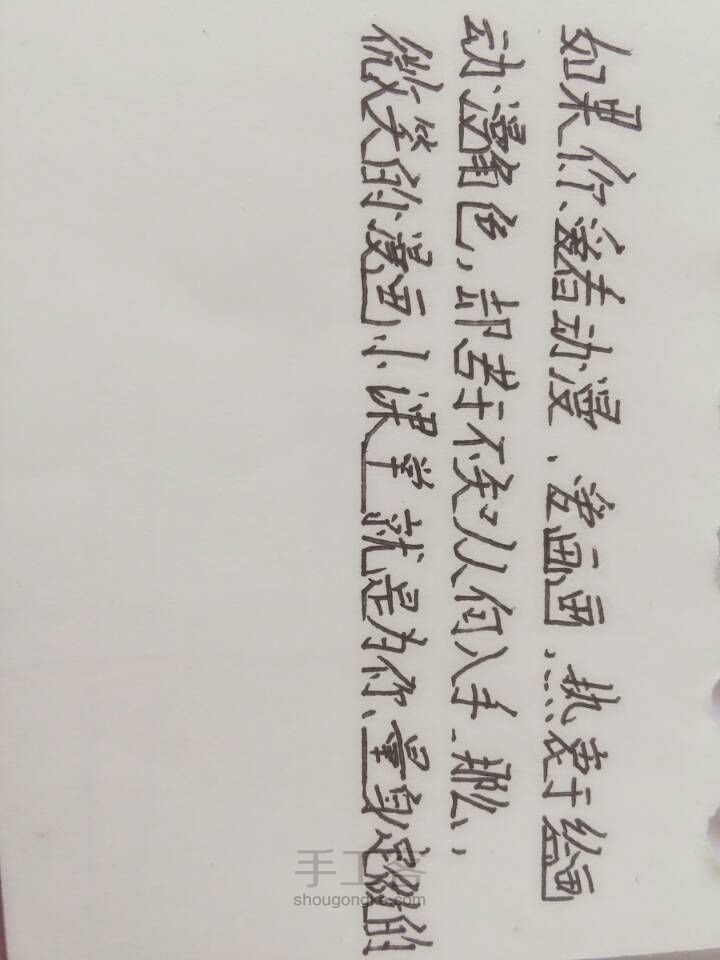 如果你爱着动漫、爱画画,热衷于绘画
动漫角色,却苦于不知从何入手.那么,
微笑的漫画小课堂就是为你量身定做的
手工客
shougongke.com